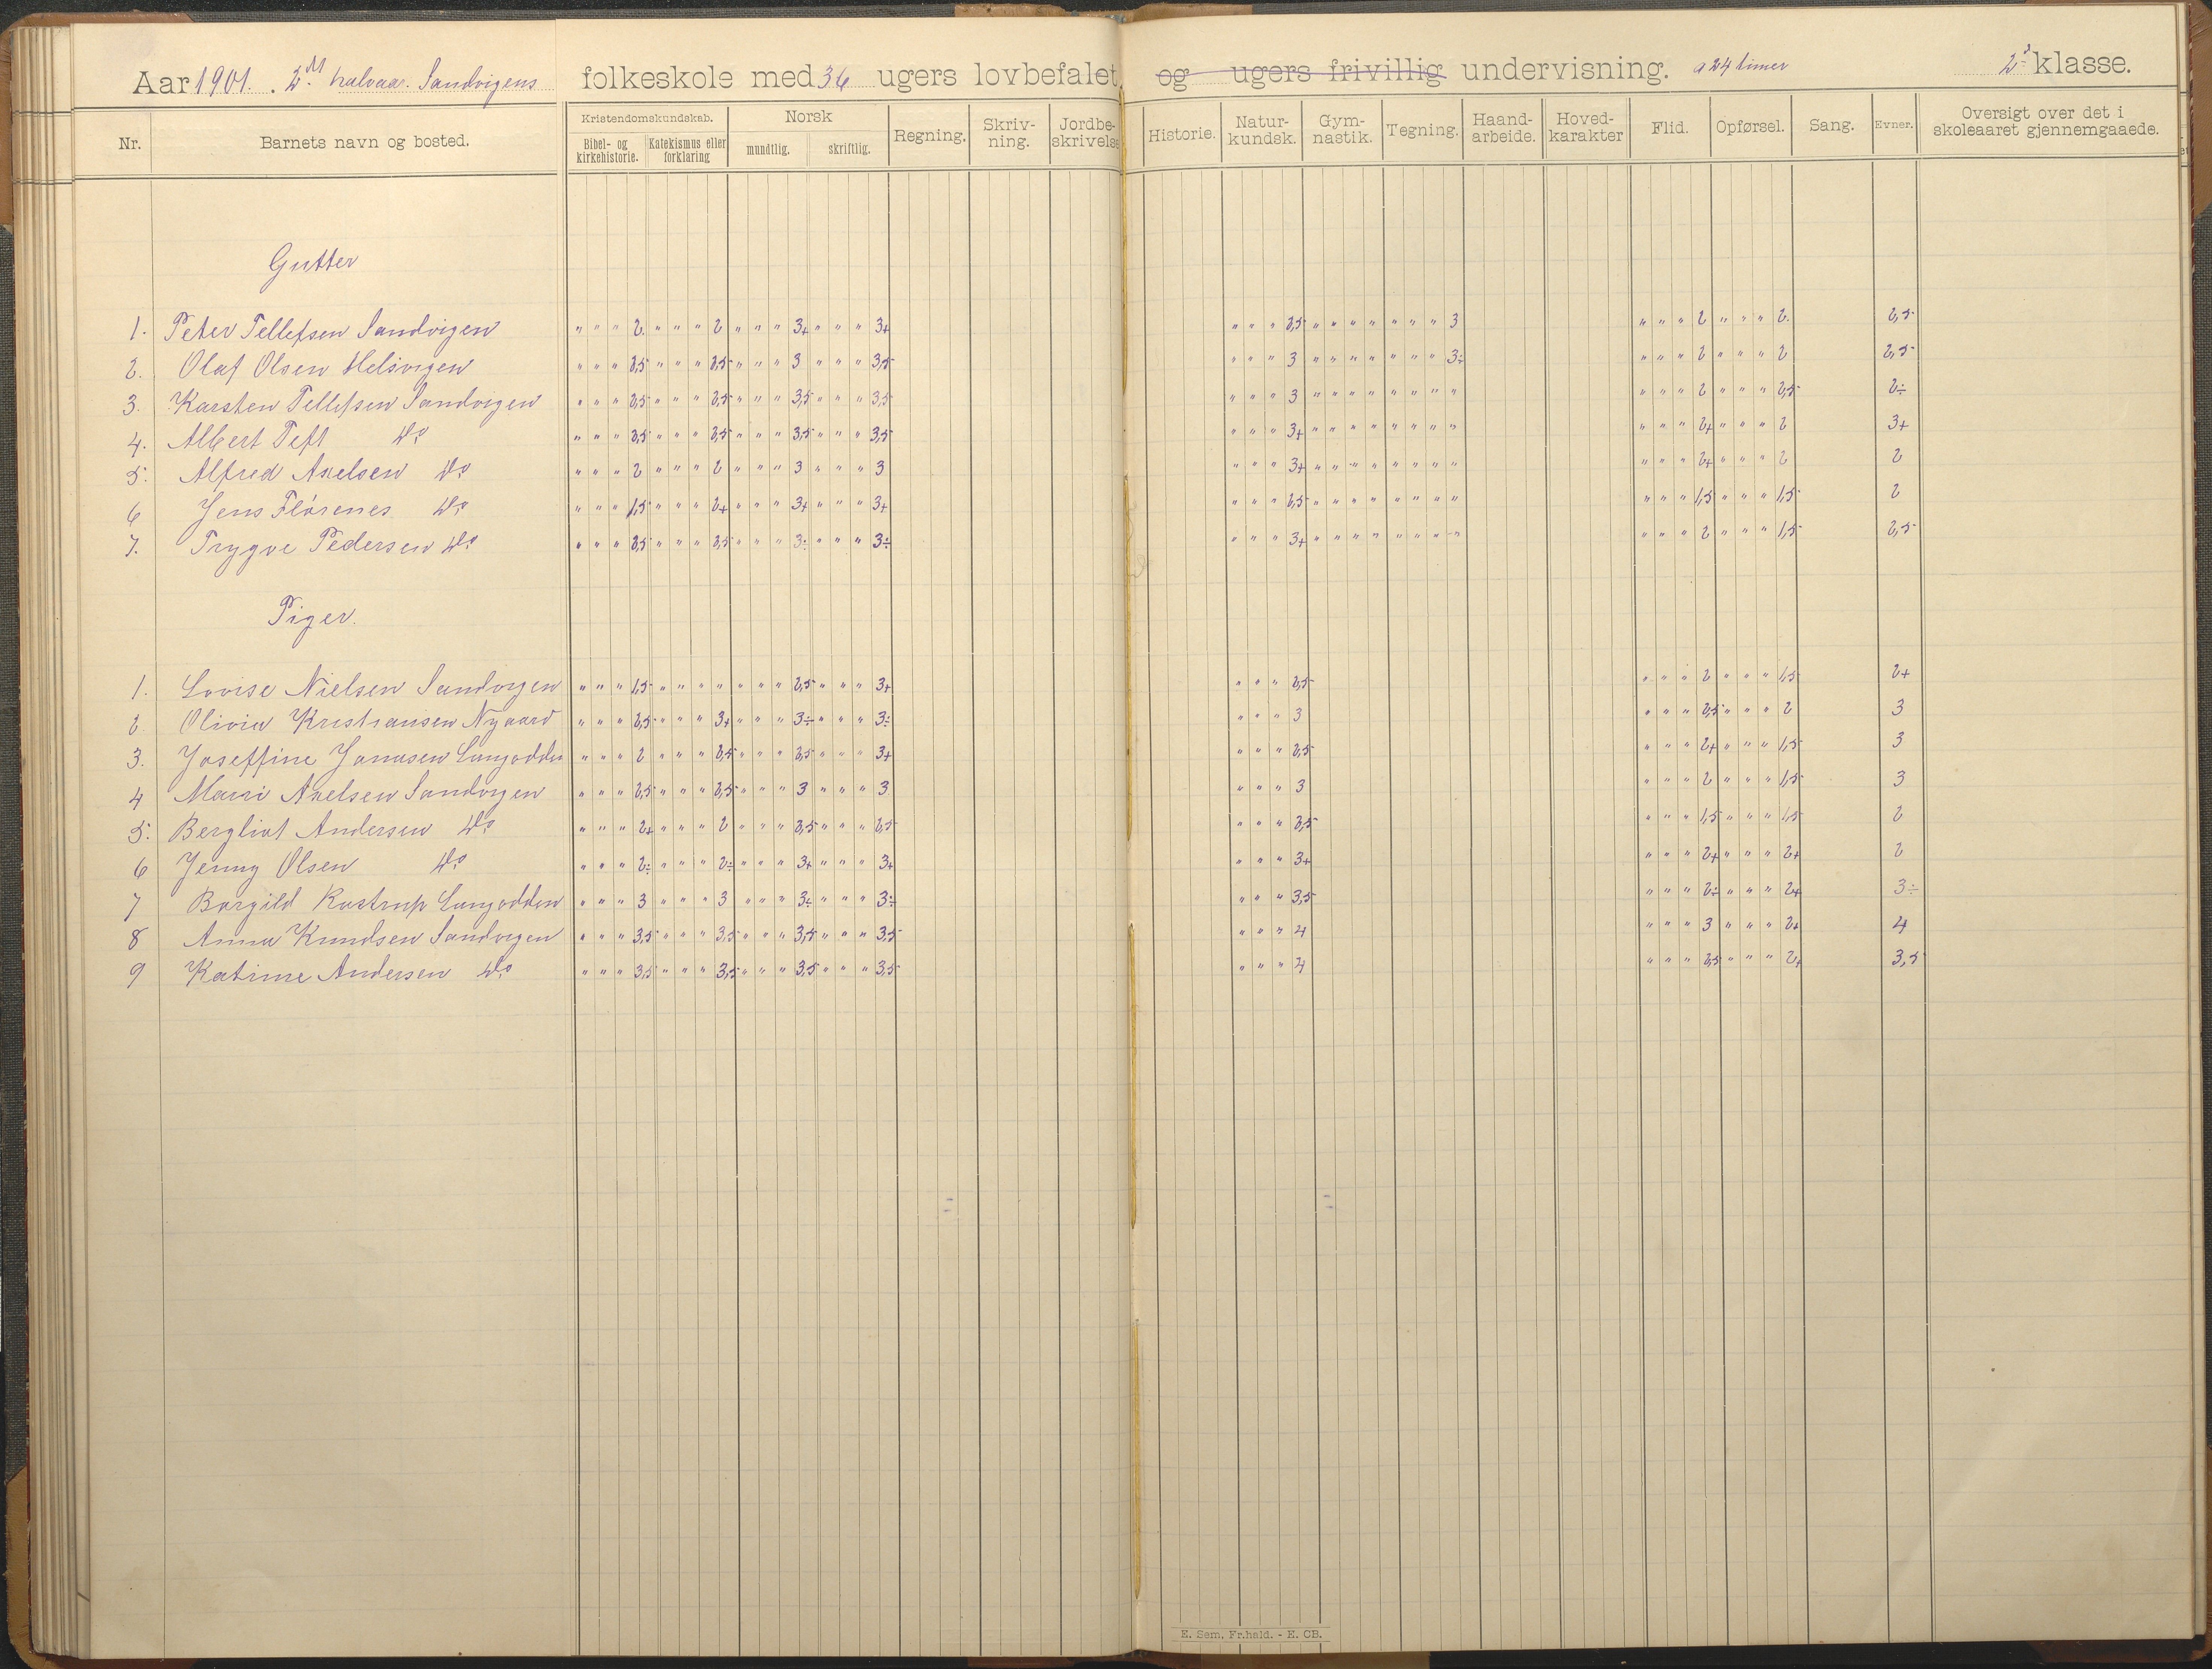 Aar 1901. 2det halvaar. Sandvigens folkeskole med 36 ugers lovbefalet og ugers frivillig undervisning. a 24 timer 2den klasse.
Nr. Barnets navn og bosted. Kristendomskundskab. Norsk Regning. Skriv-ning. Jordbe-skrivelse Historie. Natur-kundsk. Gym-nastik. Tegning. Haand-arbeide. Hoved-karakter Flid. Opførsel. Sang. Evner. Oversigt over det i skoleaaret gjennemgaaede.
Bibel- og kirkehistorie. Katekismus eller forklaring mundtlig. skriftlig.
Gutter
1. Peter Tellefsen Sandvigen " " " 2 " " " 2 " " " 3+ " " " 3+ " " " 2,5 " " " " " " " 3 " " " 2 " " " 2. 2,5
2. Olaf Olsen Helsvigen " " " 2,5 " " " 2,5 " " " 3 " " " 3,5 " " " 3 " " " " " " " 3÷ " " " 2 " " " 2 2,5
3. Karsten Tellefsen Sandvigen " " " 2,5 " " " 2,5 " " " 3,5 " " " 3,5 " " " 3 " " " " " " " " " " " 2 " " " 2,5 2÷
4. Albert Teft Do " " " 2,5 " " " 2,5 " " " 3,5 " " " 3,5 " " " 3+ " " " " " " " " " " " 2+ " " " 2 3+
5. Alfred Axelsen Do " " " 2 " " " 2 " " " 3 " " " 3 " " " 3+ " " " " " " " " " " " 2+ " " " 2 2
6 Jens Flørenes Do " " " 1,5 " " " 2+ " " " 3+ " " " 3+ " " " 2,5 " " " " " " " " " " " 1,5 " " " 1,5 2
7. Trygve Pedersen Do " " " 2,5 " " " 2,5 " " " 3÷ " " " 3÷ " " " 3+ " " " " " " " " " " " 2 " " " 1,5 2,5
Piger.
1. Lovise Nielsen Sandvigen " " " 1,5 " " " " " " " 2,5 " " " 3+ " " " 2,5 " " " 2 " " " 1,5 2+
2. Olivia Kristiansen Nygaard " " " 2,5 " " " 3+ " " " 3÷ " " " 3÷ " " " 3 " " " 2,5 " " " 2 3
3. Joseffine Jonassen Langodden " " " 2 " " " 2,5 " " " 2,5 " " " 3+ " " " 2,5 " " " 2+ " " " 1,5 3
4 Marri Axelsen Sandvigen " " " 2,5 " " " 2,5 " " " 3 " " " 3 " " " 3 " " " 2 " " " 1,5 3
5. Bergliot Andersen Do " " " 2+ " " " 2 " " " 2,5 " " " 2,5 " " " 2,5 " " " 1,5 " " " 1,5 2
6 Jenny Olsen Do " " " 2÷ " " " 2÷ " " " 3+ " " " 3+ " " " 3+ " " " 2+ " " " 2+ 2
7 Borgild Rostrup Langodden " " " 3 " " " 3 " " " 3÷ " " " 3÷ " " " 3,5 " " " 2÷ " " " 2+ 3÷
8 Anna Knudsen Sandvigen " " " 3,5 " " " 3,5 " " " 3,5 " " " 3,5 " " " 4 " " " 3 " " " 2+ 4
9 Katinne Andersen Do " " " 3,5 " " " 3,5 " " " 3,5 " " " 3,5 " " " 4 " " " 2,5 " " " 2+ 3,5
E. Sem, Fr.hald. - E. CB.